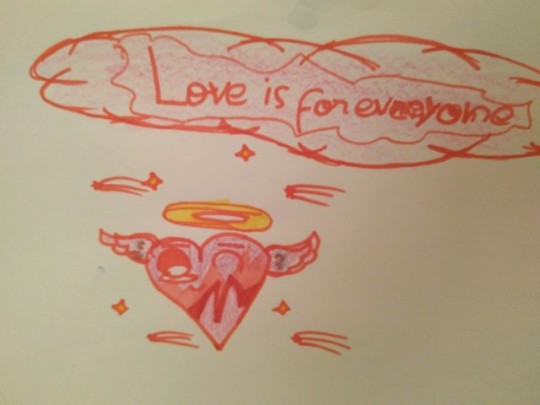 Love is for everyone